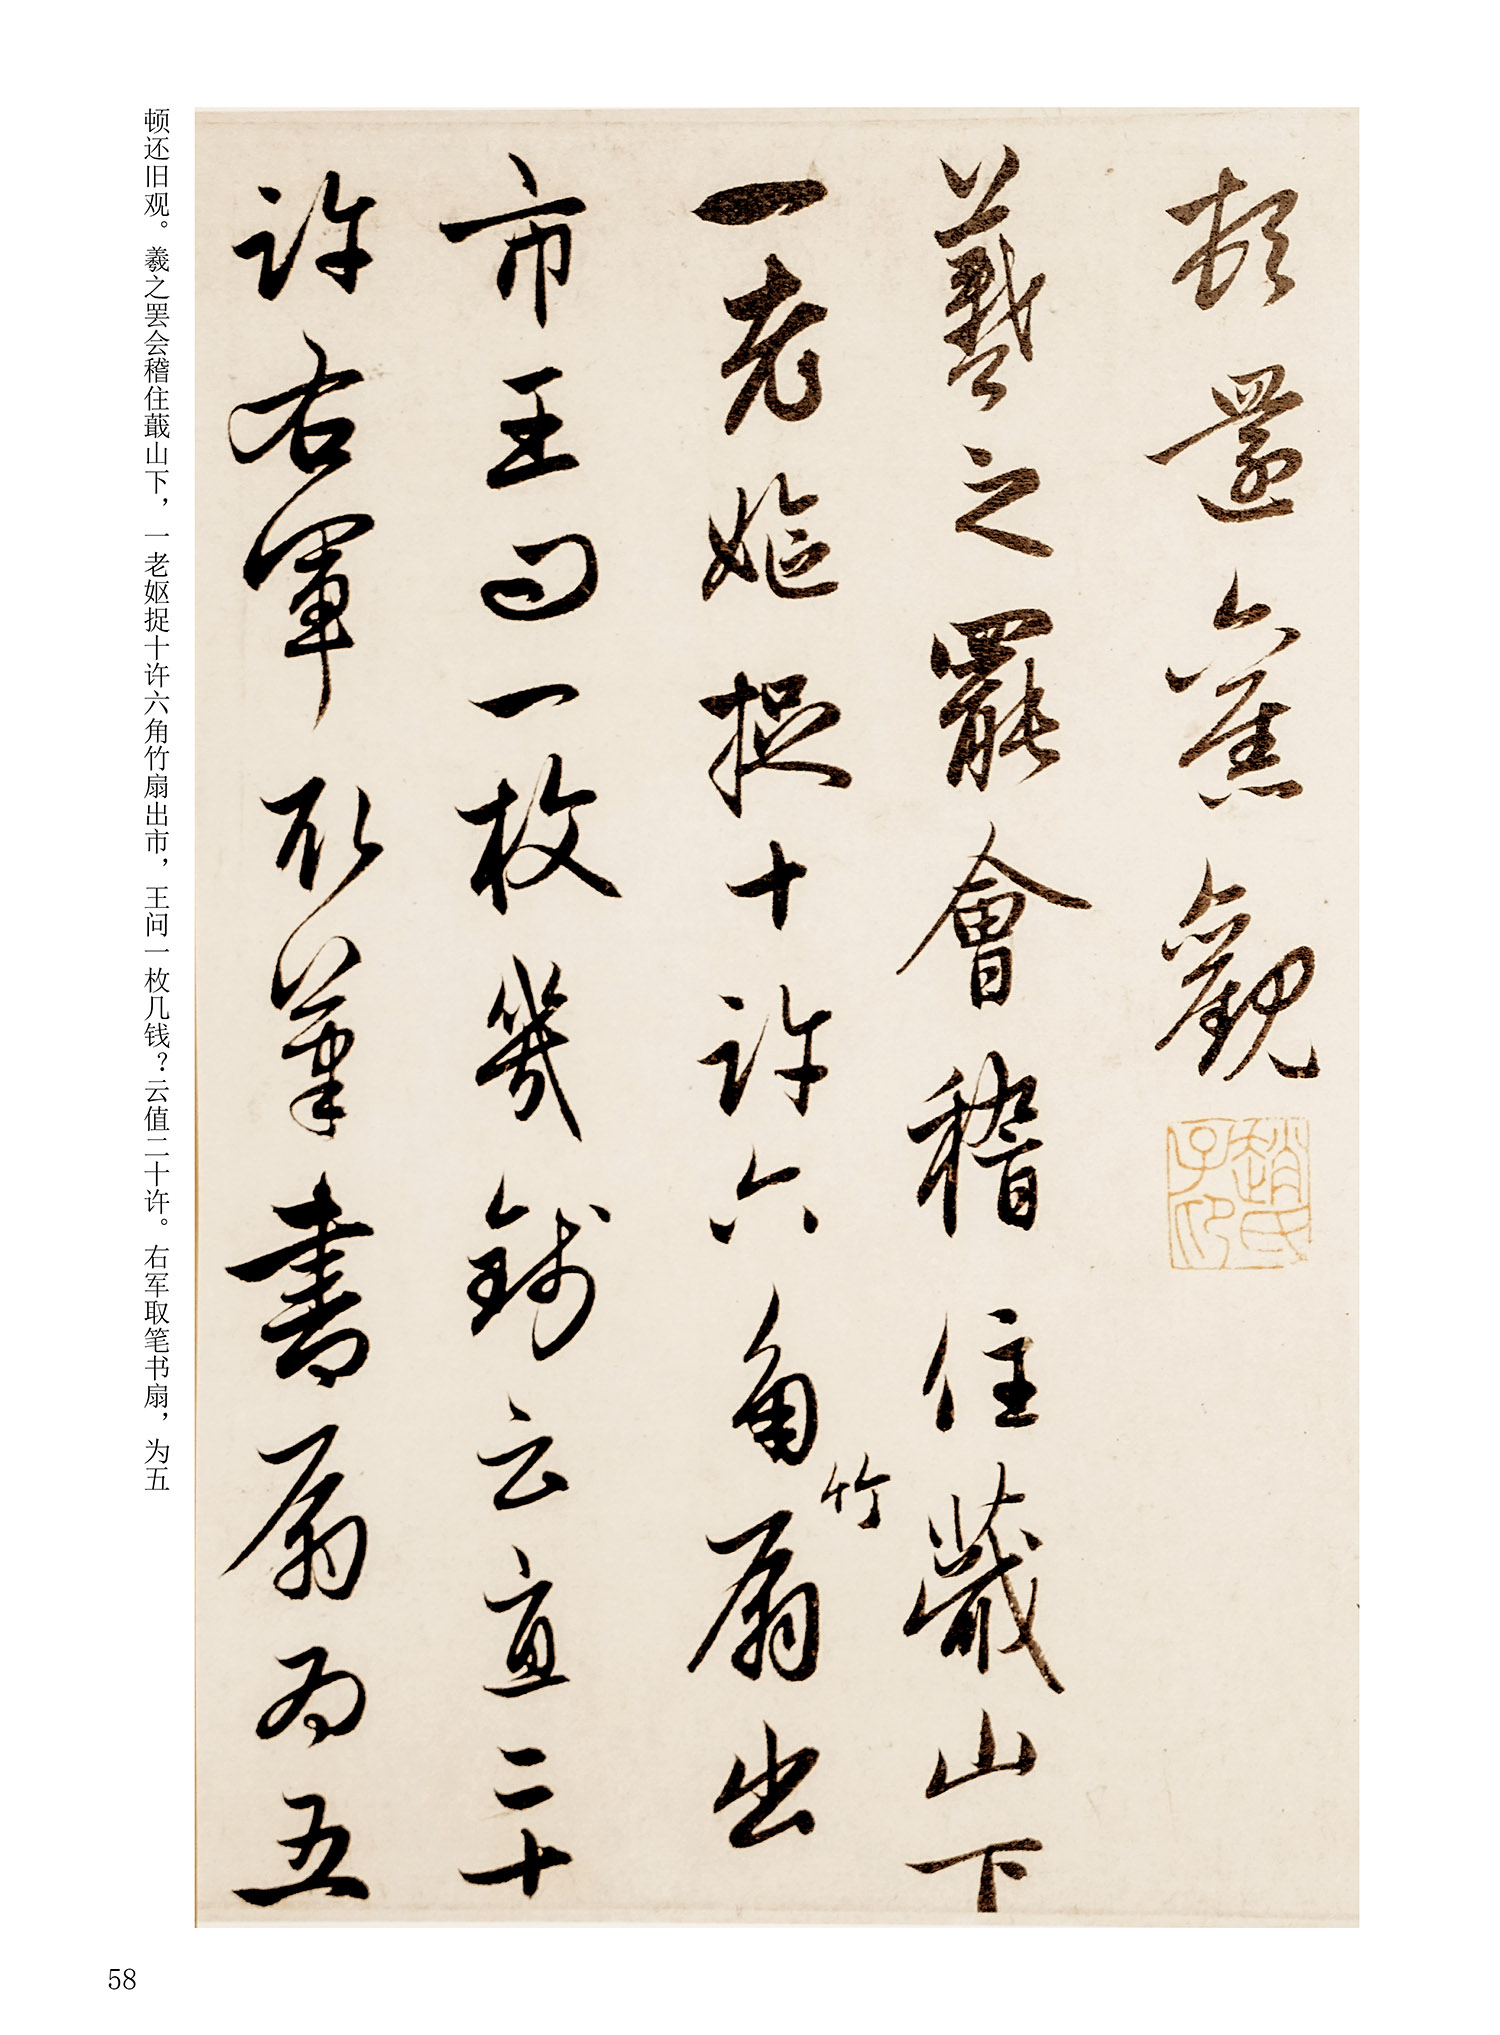 頓還舊觀
趙氏子印
羲之罷會稽住蕺山下
一老嫗捉十許六角竹扇出
市王問一枚幾錢云直二十
許右軍取筆書扇為五
顿还旧观。羲之罢会稽住蕺山下，一老妪捉十许六角竹扇出市，王问一枚几钱？云值二十许。右军取笔书扇，为五
58